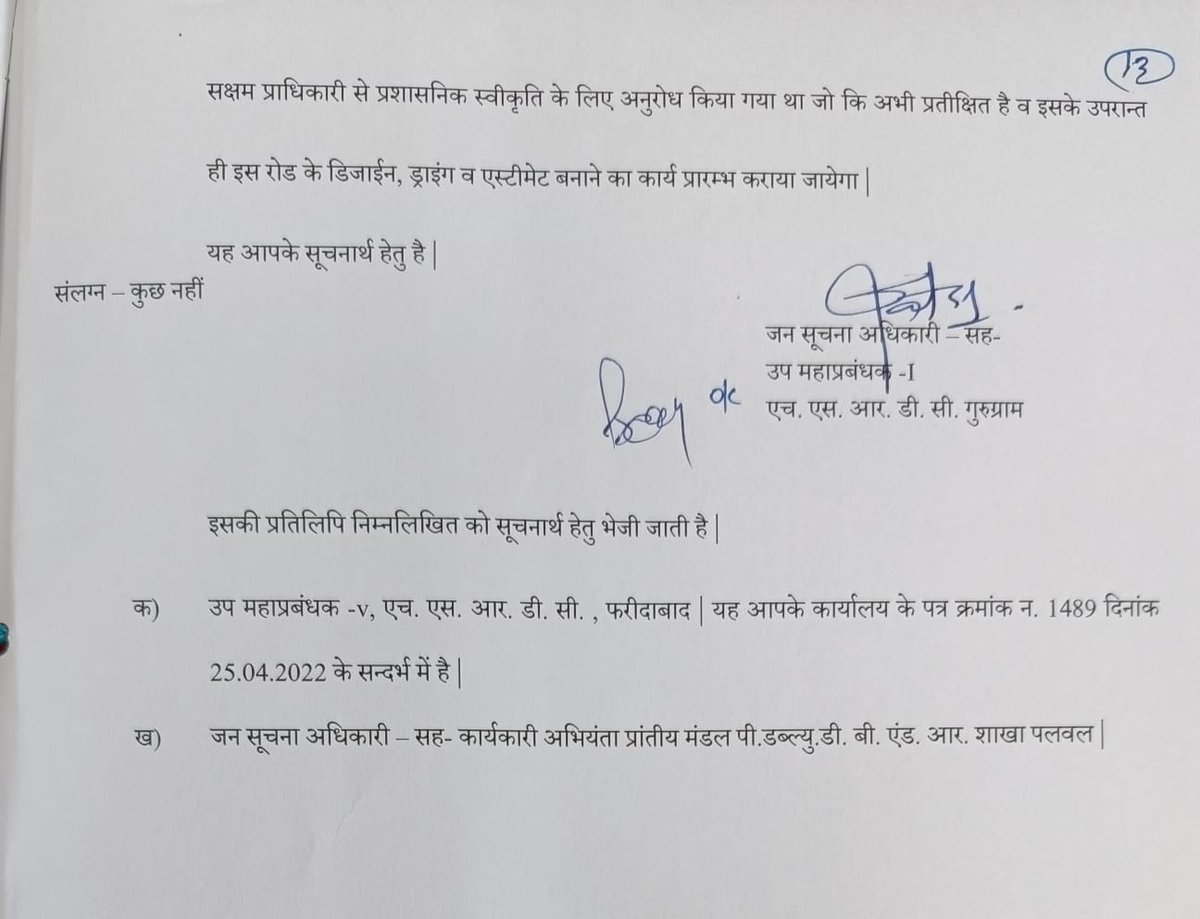 13
सक्षम प्राधिकारी से प्रशासनिक स्वीकृति के लिए अनुरोध किया गया था जो कि अभी प्रतीक्षित है व इसके उपरान्त
ही इस रोड के डिजाईन, ड्राइंग व एस्टीमेट बनाने का कार्य प्रारम्भ कराया जायेगा |
यह आपके सूचनार्थ हेतु है |
संलग्न – कुछ नहीं
जन सूचना अधिकारी – सह-
उप महाप्रबंधक -I
एच. एस. आर. डी. सी. गुरुग्राम
इसकी प्रतिलिपि निम्नलिखित को सूचनार्थ हेतु भेजी जाती है |
क) उप महाप्रबंधक -v, एच. एस. आर. डी. सी. , फरीदाबाद | यह आपके कार्यालय के पत्र क्रमांक न. 1489 दिनांक
25.04.2022 के सन्दर्भ में है |
ख) जन सूचना अधिकारी – सह- कार्यकारी अभियंता प्रांतीय मंडल पी.डब्ल्यु.डी. बी. एंड. आर. शाखा पलवल |